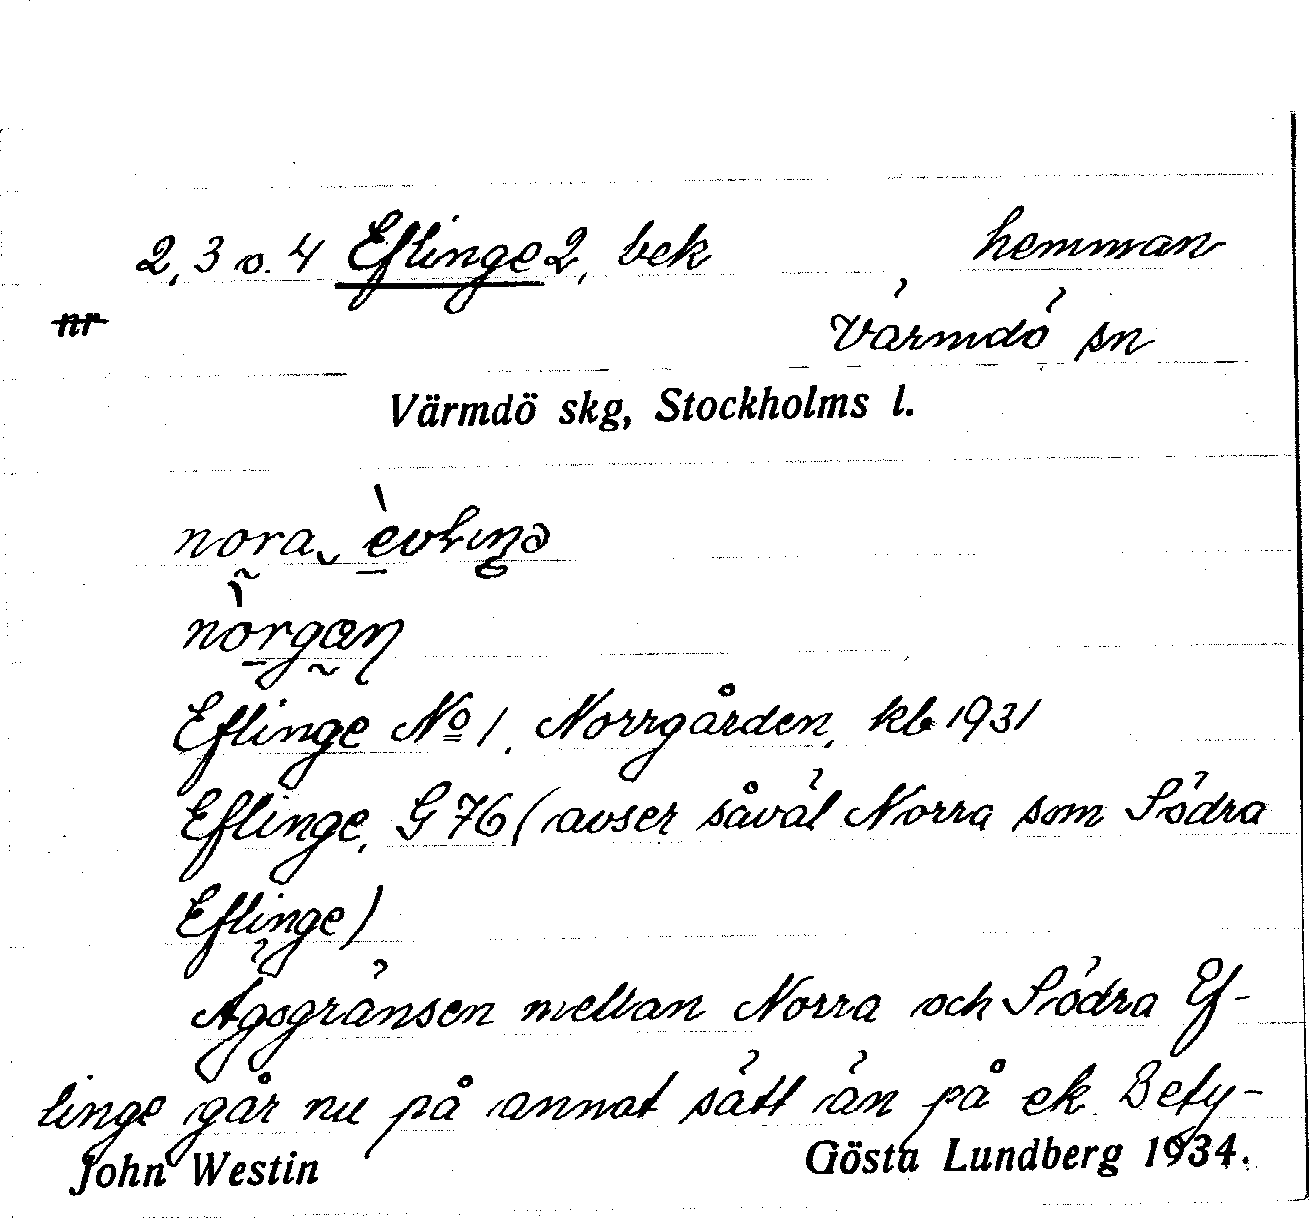 2, 3 o. 4 Eflinge 2, bek hemman
nr
Värmdö sn
Värmdö skg, Stockholms l.
nora
Eflinge No 1, Norrgården, kb 1931
Eflinge, G 76 (avser såväl Norra som Södra
Eflinge)
Ägogränsen mellan Norra och Södra Ef-
linge går nu på annat sätt än på ek. Bety-
John Westin Gösta Lundberg 1934.